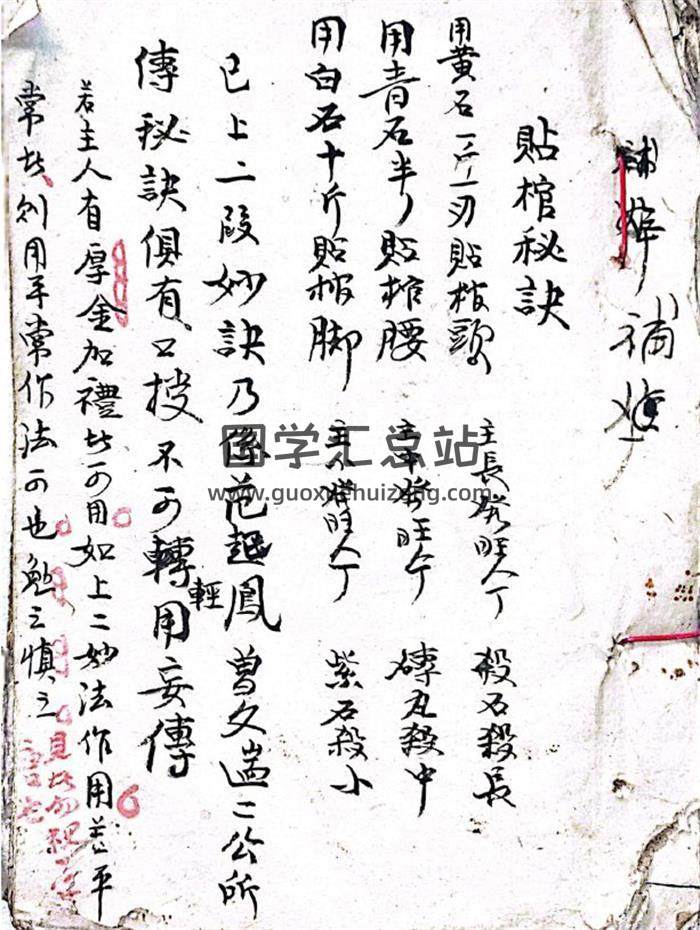 補
貼棺秘訣
用黄石一斤一刃貼棺頭 主長發旺人丁 殺石殺長
用青石半 貼棺腰 主中發旺丁 磚瓦殺中
用白石十斤貼棺脚 主小發旺人丁 紫石殺小
已上二段妙訣乃係范越鳳曾文遄二公所
傳秘訣俱有口授不可轉用妄傳
輕
若主人有厚金加禮 可用如上二妙法作用若平
常 則用平常作法可也勉之慎之
国学汇总站
www.guoxuehuizong.com